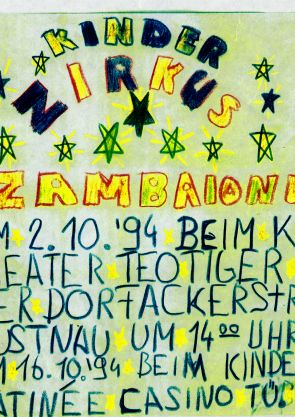 KINDER
ZIRKUS
ZAMBAIONI
M 2.10.'94 BEIM K
EATER TEOTIGER
ER DORFACKERSTR
USTNAU UM 14⁰⁰ UHR
M 16.10.'94 BEIM KINDE
ATINÉE CASINO TÜB